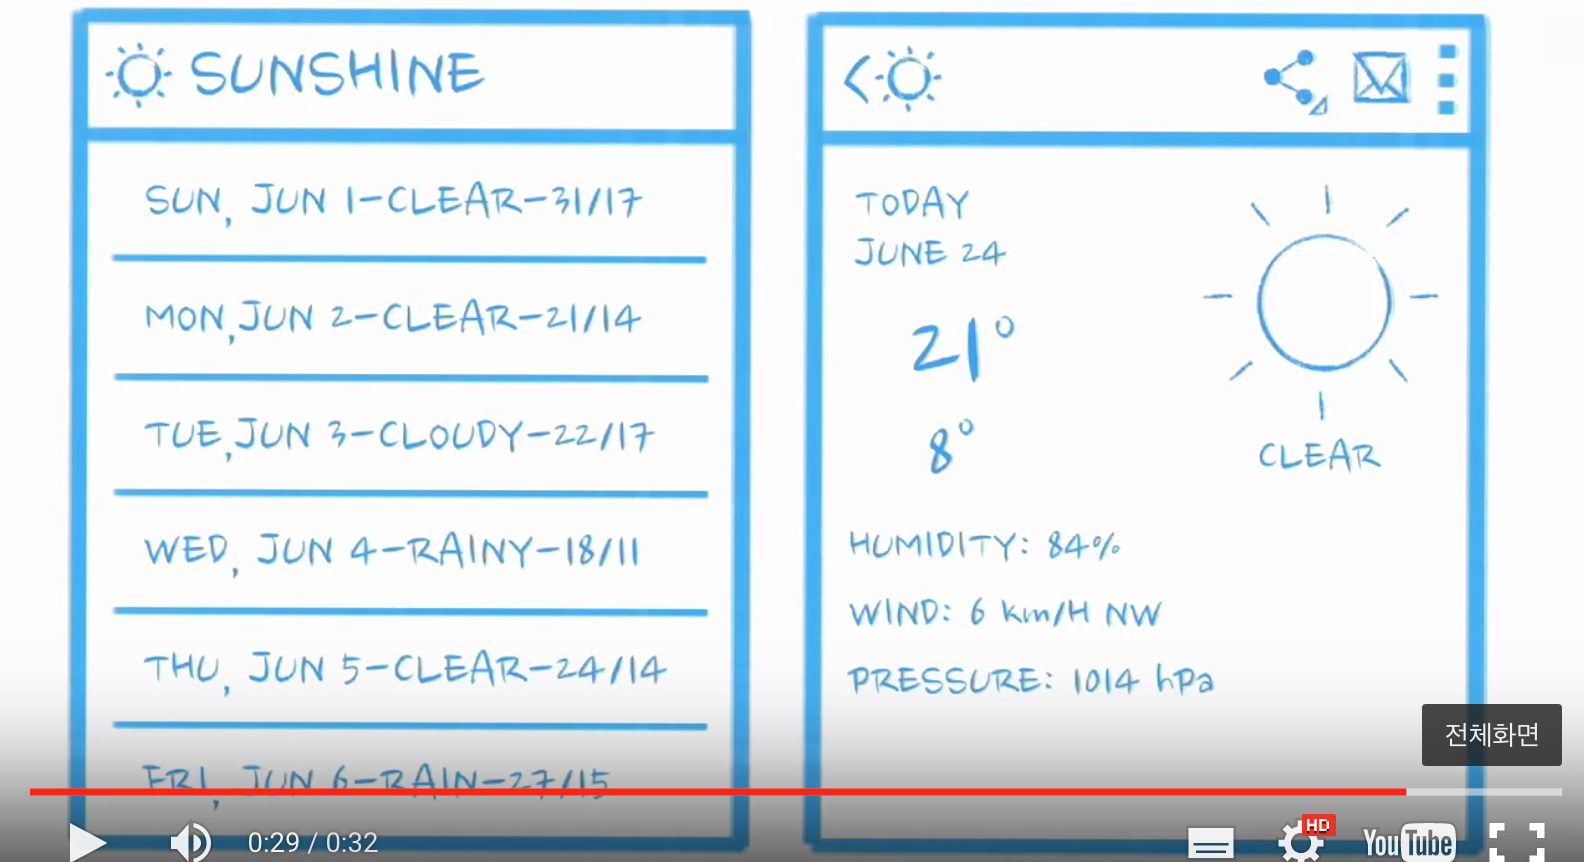 SUNSHINE
SUN, JUN 1-CLEAR-31/17
MON, JUN 2-CLEAR-21/14
TUE, JUN 3-CLOUDY-22/17
WED, JUN 4-RAINY-18/11
THU, JUN 5-CLEAR-24/14
FRI, JUN 6-RAIN-27/15
TODAY
JUNE 24
21°
8°
CLEAR
HUMIDITY: 84%
WIND: 6 km/H NW
PRESSURE: 1014 hPa
전체화면
0:29 / 0:32
HD
YouTube